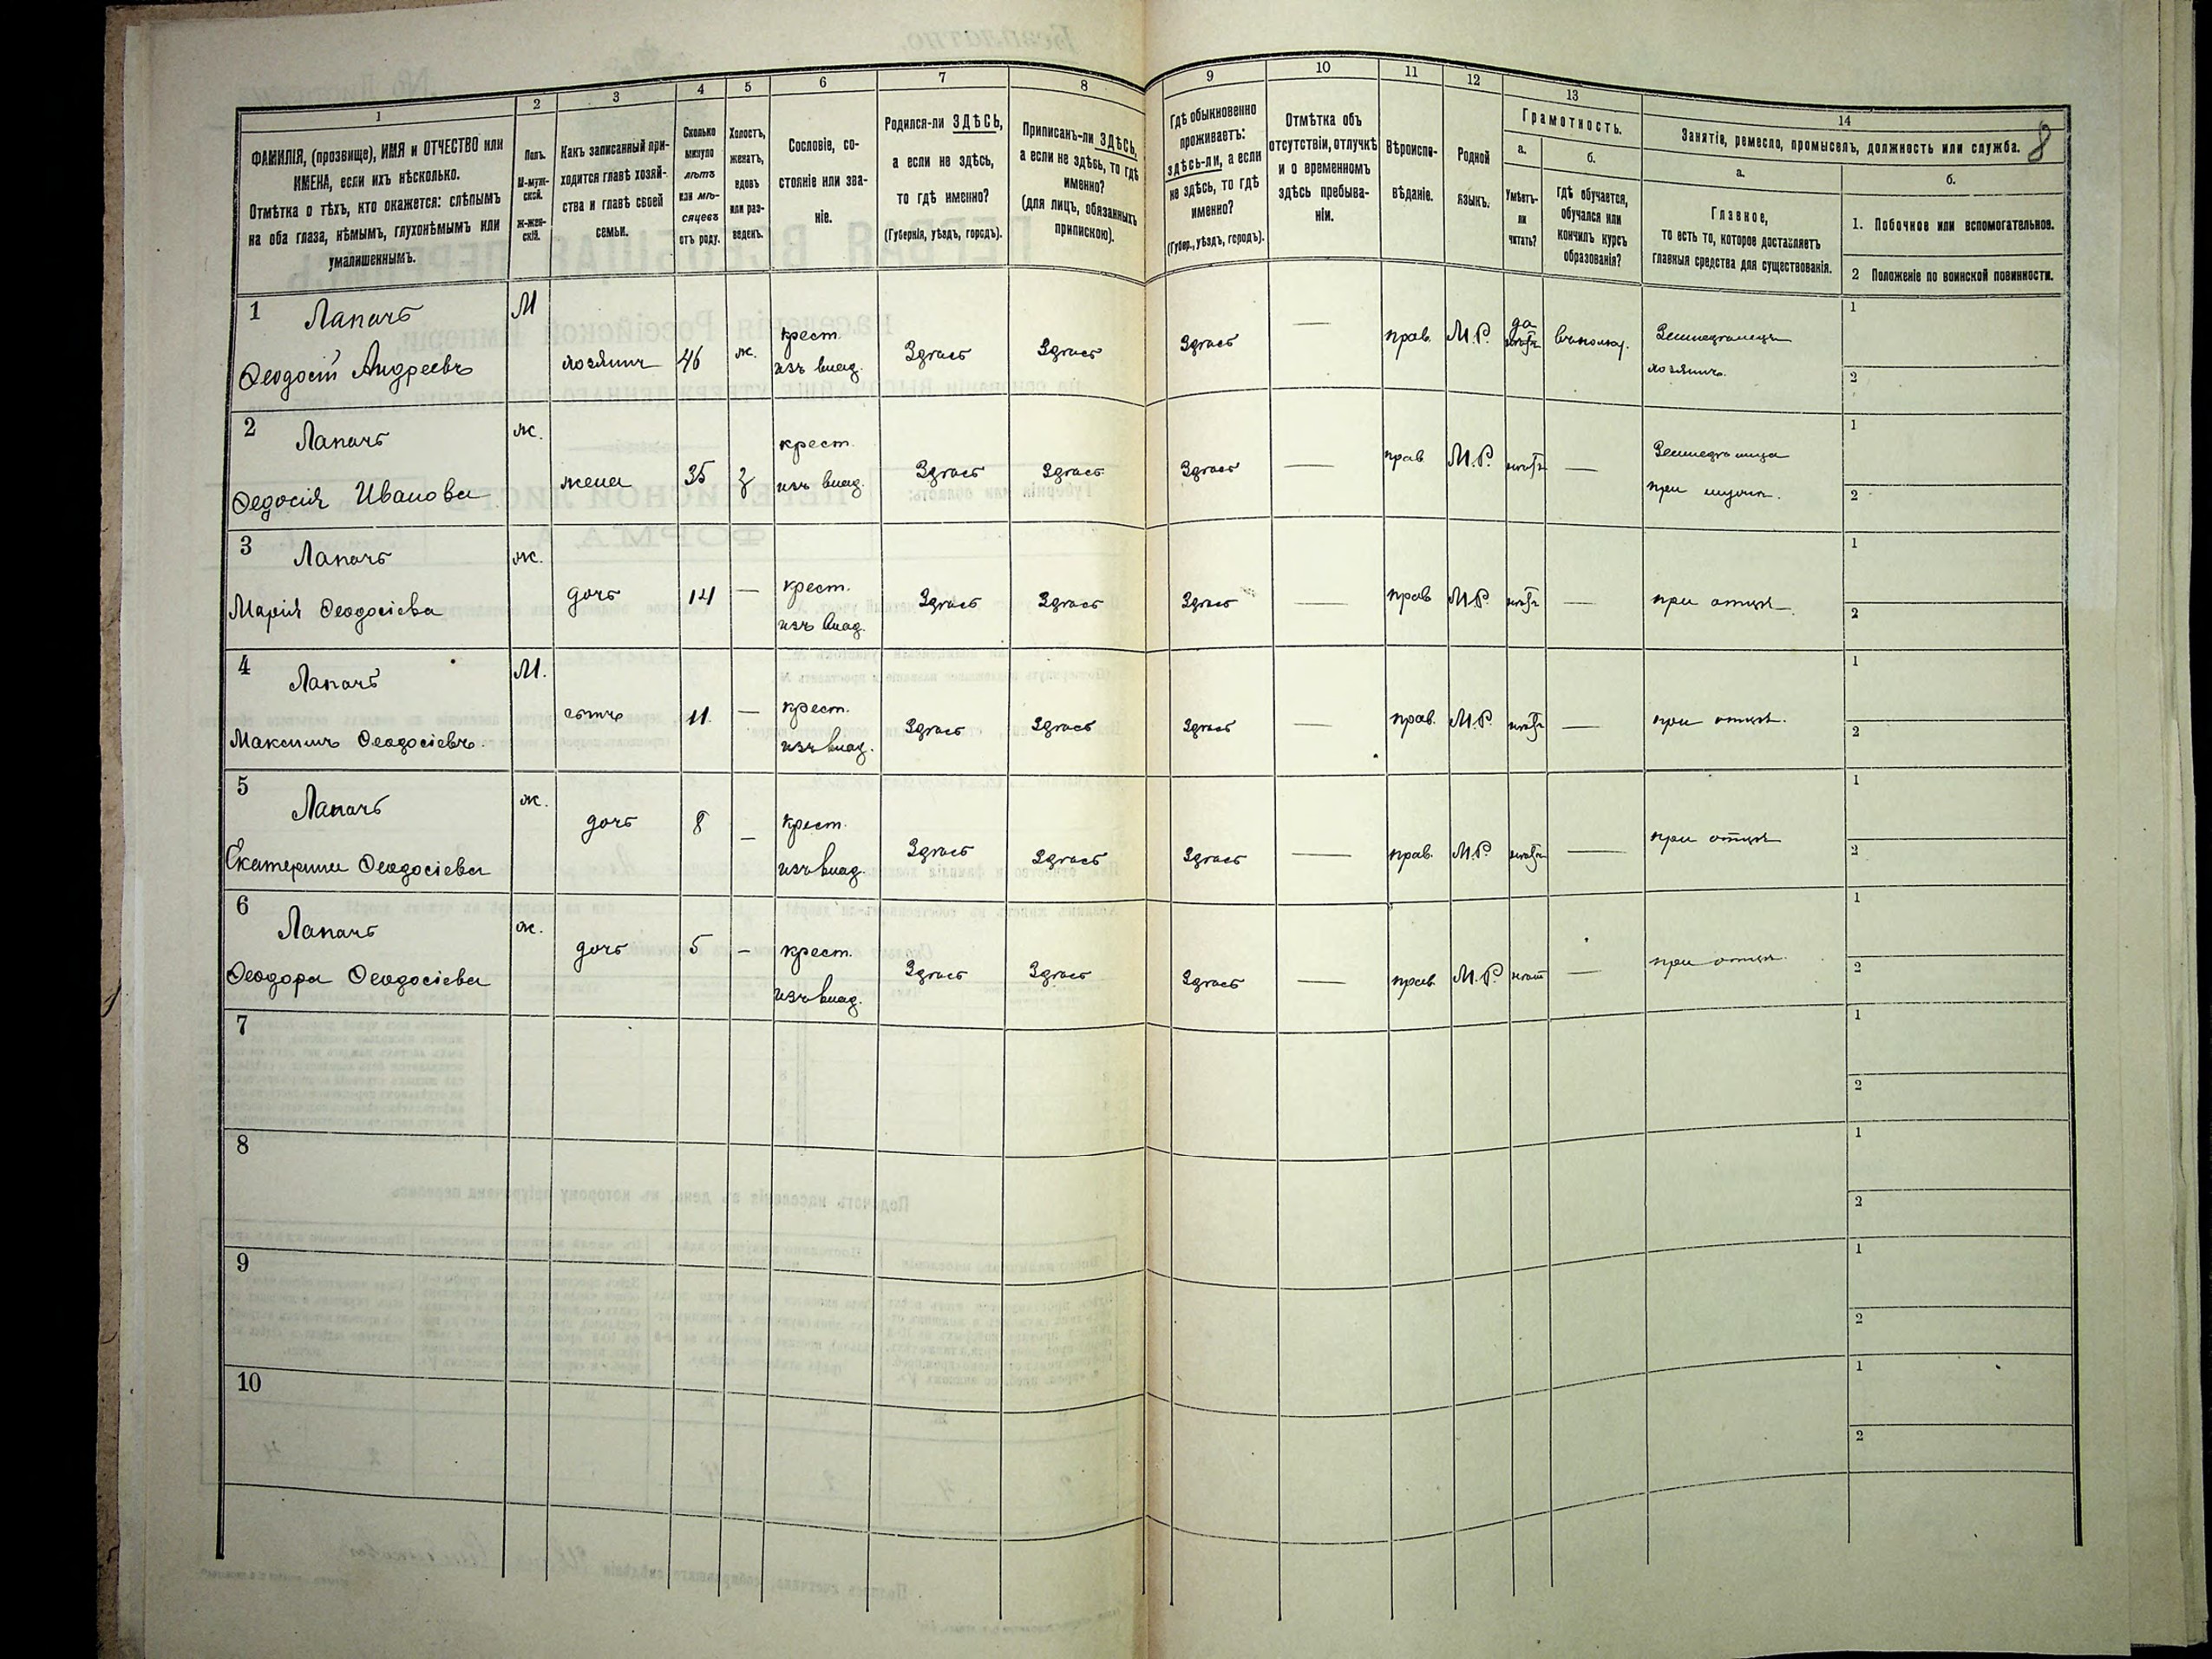 1 2 3 4 5 6 7 8 9 10 11 12 13 14
8
ФАМИЛІЯ, (прозвище), ИМЯ и ОТЧЕСТВО или
ИМЕНА, если ихъ нѣсколько.
Отмѣтка о тѣхъ, кто окажется: слѣпымъ
на оба глаза, нѣмымъ, глухонѣмымъ или
умалишеннымъ.
Полъ.
М-муж-
ской.
Ж-жен-
скій.
Какъ записанный при-
ходится главѣ хозяй-
ства и главѣ своей
семьи.
Сколько
минуло
лѣтъ
или мѣ-
сяцевъ
отъ роду.
Холостъ,
женатъ,
вдовъ
или раз-
веденъ.
Сословіе, со-
стояніе или зва-
ніе.
Родился-ли ЗДѢСЬ,
а если не здѣсь,
то гдѣ именно?
(Губернія, уѣздъ, городъ).
Приписанъ-ли ЗДѢСЬ,
а если не здѣсь, то гдѣ
именно?
(для лицъ, обязанныхъ
припискою).
Гдѣ обыкновенно
проживаетъ:
здѣсь-ли, а если
не здѣсь, то гдѣ
именно?
(Губер., уѣздъ, городъ).
Отмѣтка объ
отсутствіи, отлучкѣ
и о временномъ
здѣсь пребыва-
ніи.
Вѣроиспо-
вѣданіе.
Родной
языкъ.
Грамотность.
а.
Умѣетъ-
ли
читать?
б.
гдѣ обучается,
обучался или
кончилъ курсъ
образованія?
Занятіе, ремесло, промыселъ, должность или служба.
а.
Главное,
то есть то, которое доставляетъ
главныя средства для существованія.
б.
1. Побочное или вспомогательное.
2 Положеніе по воинской повинности.
1 Лапачъ М крест. да 1
Ѳеодосій Андреевъ хозяинъ 46 ж. изъ влад. Здѣсь Здѣсь Здѣсь — прав. М.Р. Земледѣлецъ
хозяинъ. 2
2 Лапачъ ж. крест. 1
Ѳедосія Иванова жена 35 з изъ влад. Здѣсь Здѣсь Здѣсь — прав М.Р. нѣтъ — Земледѣлица
при мужѣ. 2
3 Лапачъ ж. крест. 1
Марія Ѳеодосіева дочь 14 — изъ влад. Здѣсь Здѣсь Здѣсь — прав М.Р. нѣтъ — при отцѣ. 2
4 Лапачъ М. крест. 1
Максимъ Ѳеодосіевъ. сынъ 11. — изъ влад. Здѣсь Здѣсь Здѣсь — прав. М.Р. нѣтъ — при отцѣ. 2
5 Лапачъ ж. крест. 1
Екатерина Ѳеодосіева дочь 8 — изъ влад. Здѣсь Здѣсь Здѣсь — прав. М.Р. нѣтъ — при отцѣ 2
6 Лапачъ ж. крест. 1
Ѳеодора Ѳеодосіева дочь 5 — изъ влад. Здѣсь Здѣсь Здѣсь — прав. М.Р. нѣтъ — при отцѣ. 2
7 1
2
8 1
2
9 1
2
10 1
2